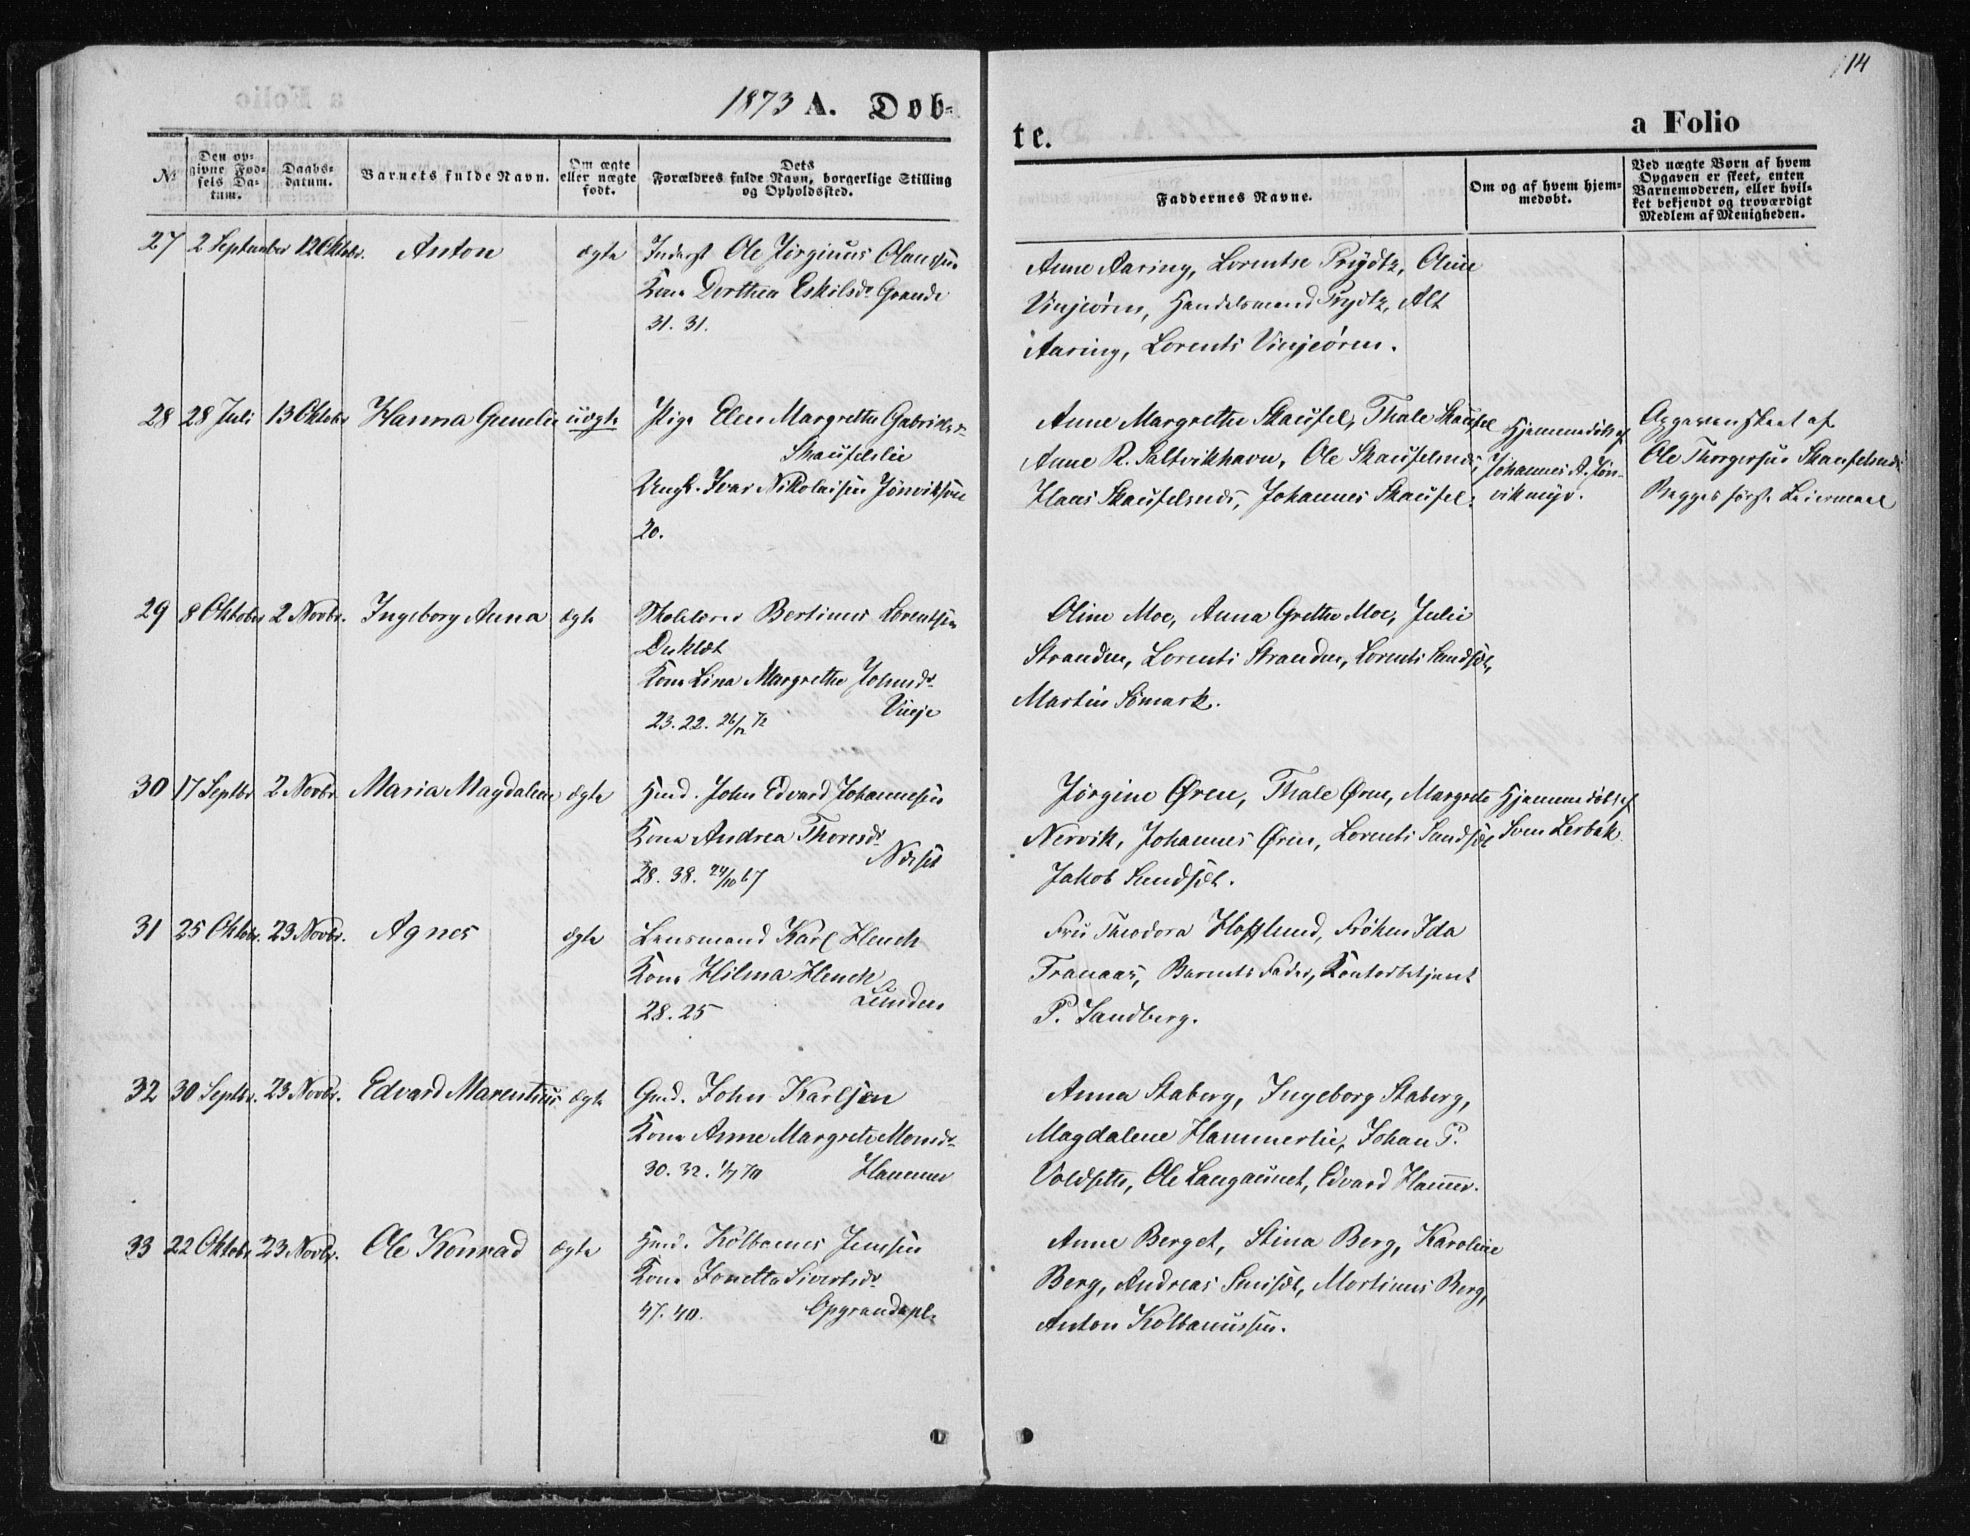 14
1873 A. Døb-
te.
a Folio
№
Den op-
givne Fød-
sels Da-
tum.
Daabs-
datum.
Barnets fulde Navn.
Om ægte
eller uægte
født.
Dets
Forældres fulde Navn, borgerlige Stilling
og Opholdssted.
Faddernes Navne.
Om og af hvem hjem-
medøbt.
Ved uægte Børn af hvem
Opgaven er skeet, enten
Barnemoderen, eller hvil-
ket bekjendt og troværdigt
Medlem af Menigheden.
27 2 September 12 Oktobr. Anton ægte Inderst Ole Jørginus Olaussen
Kone Dorthea Eskilsdr Grande
31. 31.
Anne Aaring, Lorentse Prydtz, Oline
Vinjeøren, Handelsmand Prydtz, Alt
Aaring, Lorents Vinjeøren.
28 28 Juli 13 Oktobr Hanna Gunelie uægte Pige Elen Margrethe Gabrielsdr
Skaufelslie
Ungk. Ivar Nikolaisen Jønvikson
20.
Anne Margrethe Skaufel, Thale Skaufel
Anne R. Saltvikhavn, Ole Skaufelsnds,
Klaus Skaufelsnds, Johannes Skaufel.
Hjemmedøbt af
Johannes A. Jøn-
vikmyr.
Opgaven skeet af
Ole Thorgersen Skaufelsnds
Begges første Leiermaal
29 8 Oktober 2 Novbr. Ingeborg Anna ægte Bertinus Lorentsen
Kone Lina Margrethe Johnsdr
Vinje
23. 22. 26/12 72
Oline Moe, Anna Grethe Moe, Julie
Stranden, Lorents Stranden, Lorents Sundset,
Martin Sømark.
30 17 Septbr 2 Novbr Maria Magdalene ægte Hmd. John Edvard Johannesen
Kone Andrea Thoresdr
Næset
28. 38. 24/10 67
Jørgine Øren, Thale Øren, Margrete
Nervik, Johannes Øren, Lorents Sundset
Jakob Sundset.
Hjemmedøbt af
Sven Lerbak
31 25 Oktobr. 23 Novbr. Agnes ægte Lensmand Karl Henck
Kone Hilma Henck
Lunden
28. 25
Fru Theodora Hofflund, Frøken Ida
Tranaas, Barnets Fader, Kontorbetjent
P. Sandberg.
32 30 Septbr. 23 Novbr. Edvard Marentius ægte Gmd. John Karlsen
Kone Anne Margrete Monsdr
30. 32. 1/7 70 Hammer
Anna Staberg, Ingeborg Staberg,
Magdalene Hammerlie, Johan P.
Voldsette, Ole Langaunet, Edvard Hammer.
33 22 Oktobr 23 Novbr. Ole Konrad ægte Hmd. Kolbanus Jensen
Kone Jonetta Sivertsdr
47. 40. Opgrandspl.
Anne Berget, Stina Berg, Karoline
Berg, Andreas Smiset, Mortinus Berg,
Anton Kolbanussen.